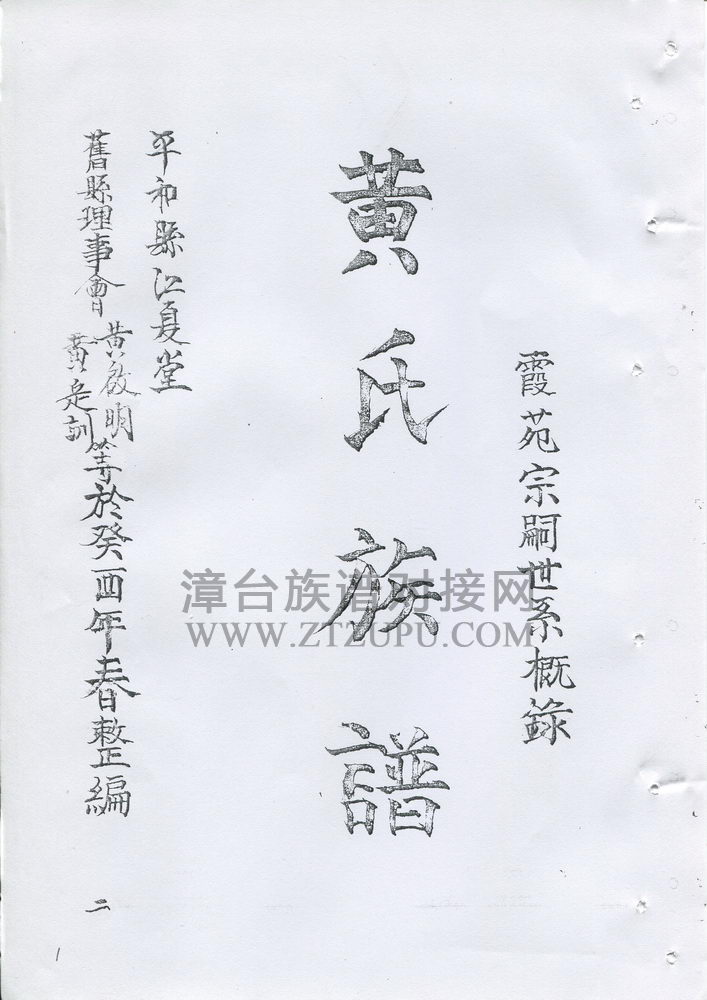 霞苑宗嗣世系概錄
黄氏族譜
平和縣江夏堂
舊縣理事會
黄啟明
黄定訓
等於癸酉年春整編
二
1
漳台族谱对接网
WWW.ZTZUPU.COM